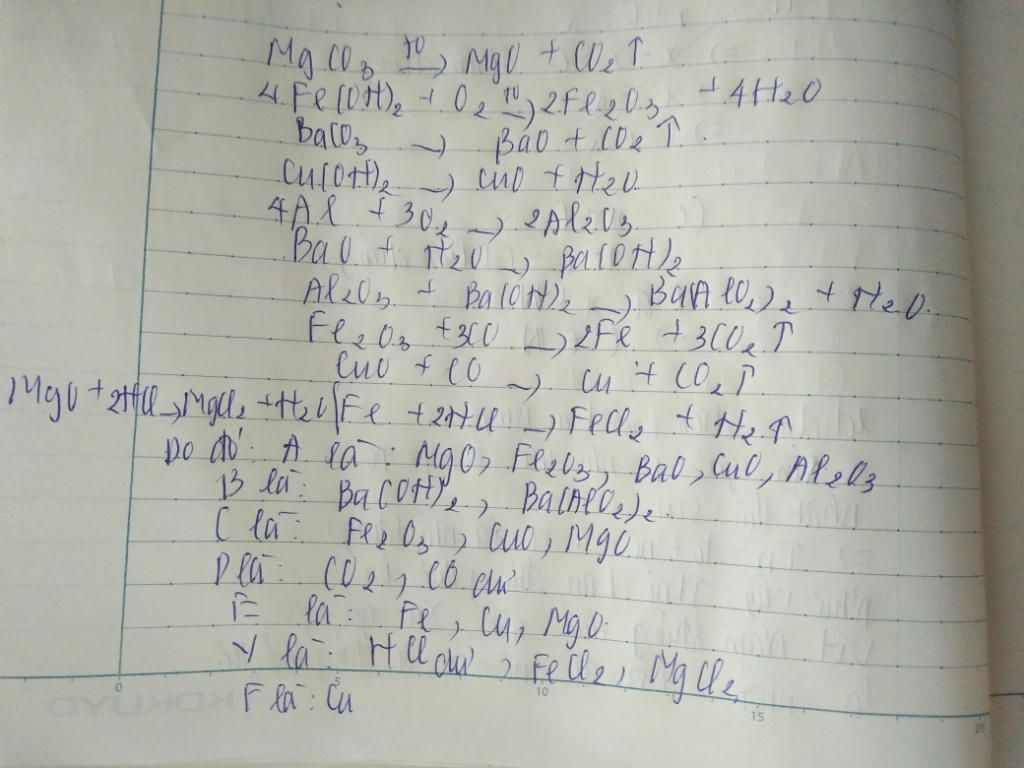 MgCO3 t0→ MgO + CO2↑
4Fe(OH)2 + O2 t0→ 2Fe2O3 + 4H2O
BaCO3 → BaO + CO2↑
Cu(OH)2 → CuO + H2O
4Al + 3O2 → 2Al2O3
BaO + H2O → Ba(OH)2
Al2O3 + Ba(OH)2 → Ba(AlO2)2 + H2O.
Fe2O3 + 3CO → 2Fe + 3CO2↑
CuO + CO → Cu + CO2↑
MgO + 2HCl → MgCl2 + H2O | Fe + 2HCl → FeCl2 + H2↑
Do đó: A là: MgO, Fe2O3, BaO, CuO, Al2O3
B là: Ba(OH)2, Ba(AlO2)2.
C là: Fe2O3, CuO, MgO
D là: CO2, CO dư
E là: Fe, Cu, MgO.
Y là: HCl dư, FeCl2, MgCl2
F là: Cu
0 5 10 15 20
KOKUYO